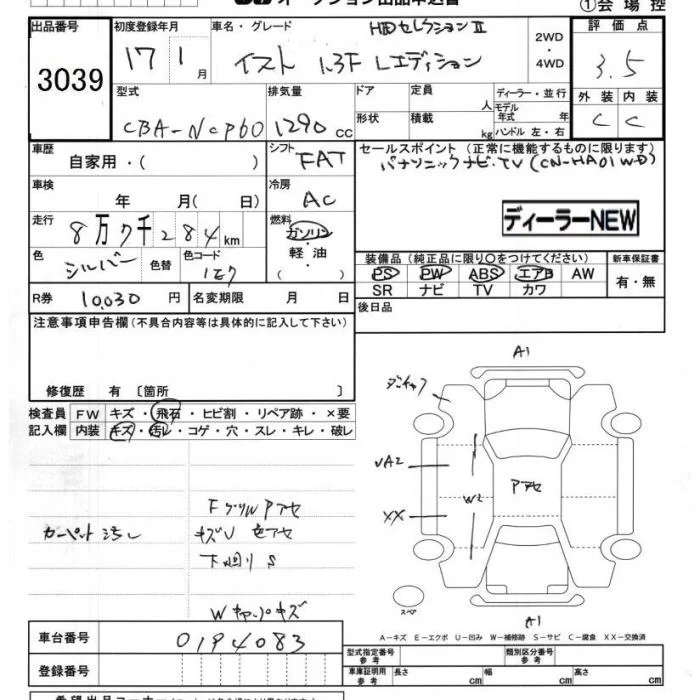 オークション出品申込書
①会場控
出品番号
3039
初度登録年月
17 1月
車名・グレード
HIDセレクションⅡ
イスト 1.3F Lエディション
2WD・4WD
評価点
3.5
型式
CBA-NCP60
排気量
1290cc
ドア
形状
定員 人
積載 kg
ディーラー・並行
モデル年式 年
ハンドル 左・右
外装 内装
C C
車歴
自家用・( )
シフト
FAT
セールスポイント (正常に機能するものに限ります)
パナソニックナビ・TV (CN-HA01WD)
車検
年 月( 日)
冷房
AC
ディーラーNEW
走行
8万7千284km
燃料
ガソリン・軽油
色
シルバー
色替
色コード
1E7
装備品 (純正品に限り○をつけてください)
PS PW ABS エアB AW
SR ナビ TV カワ
新車保証書
有・無
R券
10,030円
名変期限 月 日
後日品
注意事項申告欄 (不具合内容等は具体的に記入して下さい)
修復歴 有 〔箇所 〕
検査員記入欄
FW キズ・飛石・ヒビ割・リペア跡・×要
内装 キズ・汚レ・コゲ・穴・スレ・キレ・破レ
A1
VA2
XX
W2
Pアセ
スペア
A1
カーペット汚レ
FグリルPアセ
キズU 色アセ
下廻りS
Wキャップキズ
A-キズ E-エクボ U-凹み W-補修跡 S-サビ C-腐食 XX-交換済
車台番号
0194083
登録番号
型式指定番号 参考
類別区分番号 参考
車庫証明用 参考
長さ cm
幅 cm
高さ cm